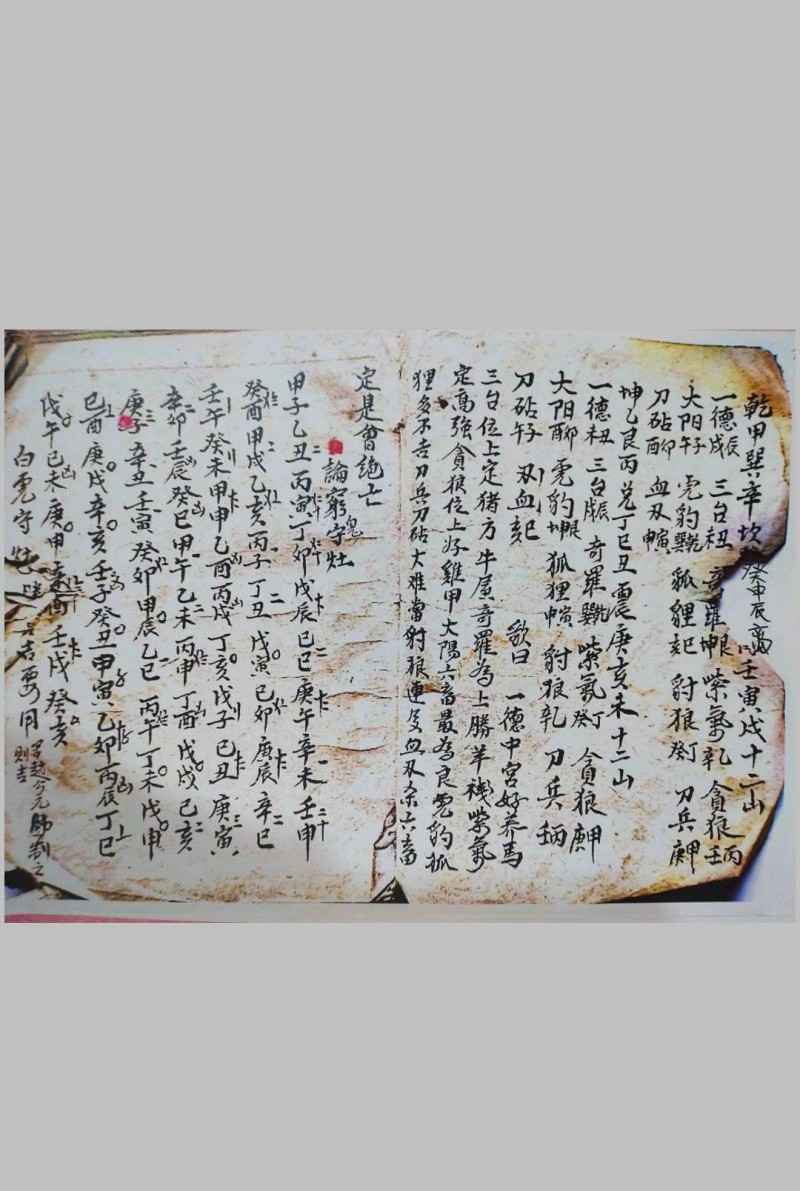 乾甲巽辛坎癸申辰離壬寅戌十二山
一德辰戌 三台丑 奇羅坤艮 紫氣乾 貪狼丙壬
太阳子午 虎豹巽 狐狸巳亥 豺狼癸丁 刀兵庚甲
刀砧卯酉 血刃申寅
坤乙艮丙兌丁巳丑震庚亥未十二山
一德丑 三台辰 奇羅巽 紫氣癸丁 貪狼庚甲
太阳卯酉 虎豹坤艮 狐狸申寅 豺狼乾 刀兵丙壬
刀砧午子 血刃亥巳 歌曰 一德中宮好养馬
三台位上定猪方 牛屋奇羅為上勝 羊棧紫氣
定高強 貪狼位上好雞甲 太陽六畜最為良 虎豹狐
狸多不吉 刀兵刀砧大难當 豺狼連及血刃杀六畜
定是曾絕亡
論窮鬼守灶
甲子乙丑丙寅丁卯戊辰己巳庚午辛未壬申
癸酉甲戌乙亥丙子丁丑戊寅己卯庚辰辛巳
壬午癸未甲申乙酉丙戌丁亥戊子己丑庚寅
辛卯壬辰癸巳甲午乙未丙申丁酉戊戌己亥
庚子辛丑壬寅癸卯甲辰乙巳丙午丁未戊申
己酉庚戌辛亥壬子癸丑甲寅乙卯丙辰丁巳
戊午己未庚申辛酉壬戌癸亥
白虎守灶 吉要用 趙公元帥制之則吉